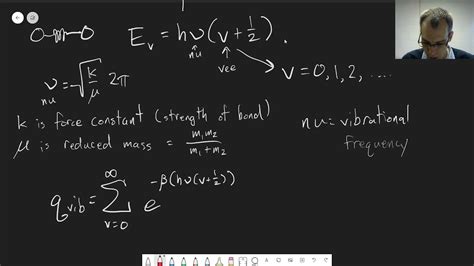 E_v = hν(v + 1/2).
nu
vee
v = 0, 1, 2, ....
ν = √(k/μ) 2π
nu
k is force constant (strength of bond)
μ is reduced mass = m₁m₂/(m₁+m₂)
nu = vibrational
frequency
q_vib = ∑_{v=0}^{∞} e^{-β(hν(v+1/2))}